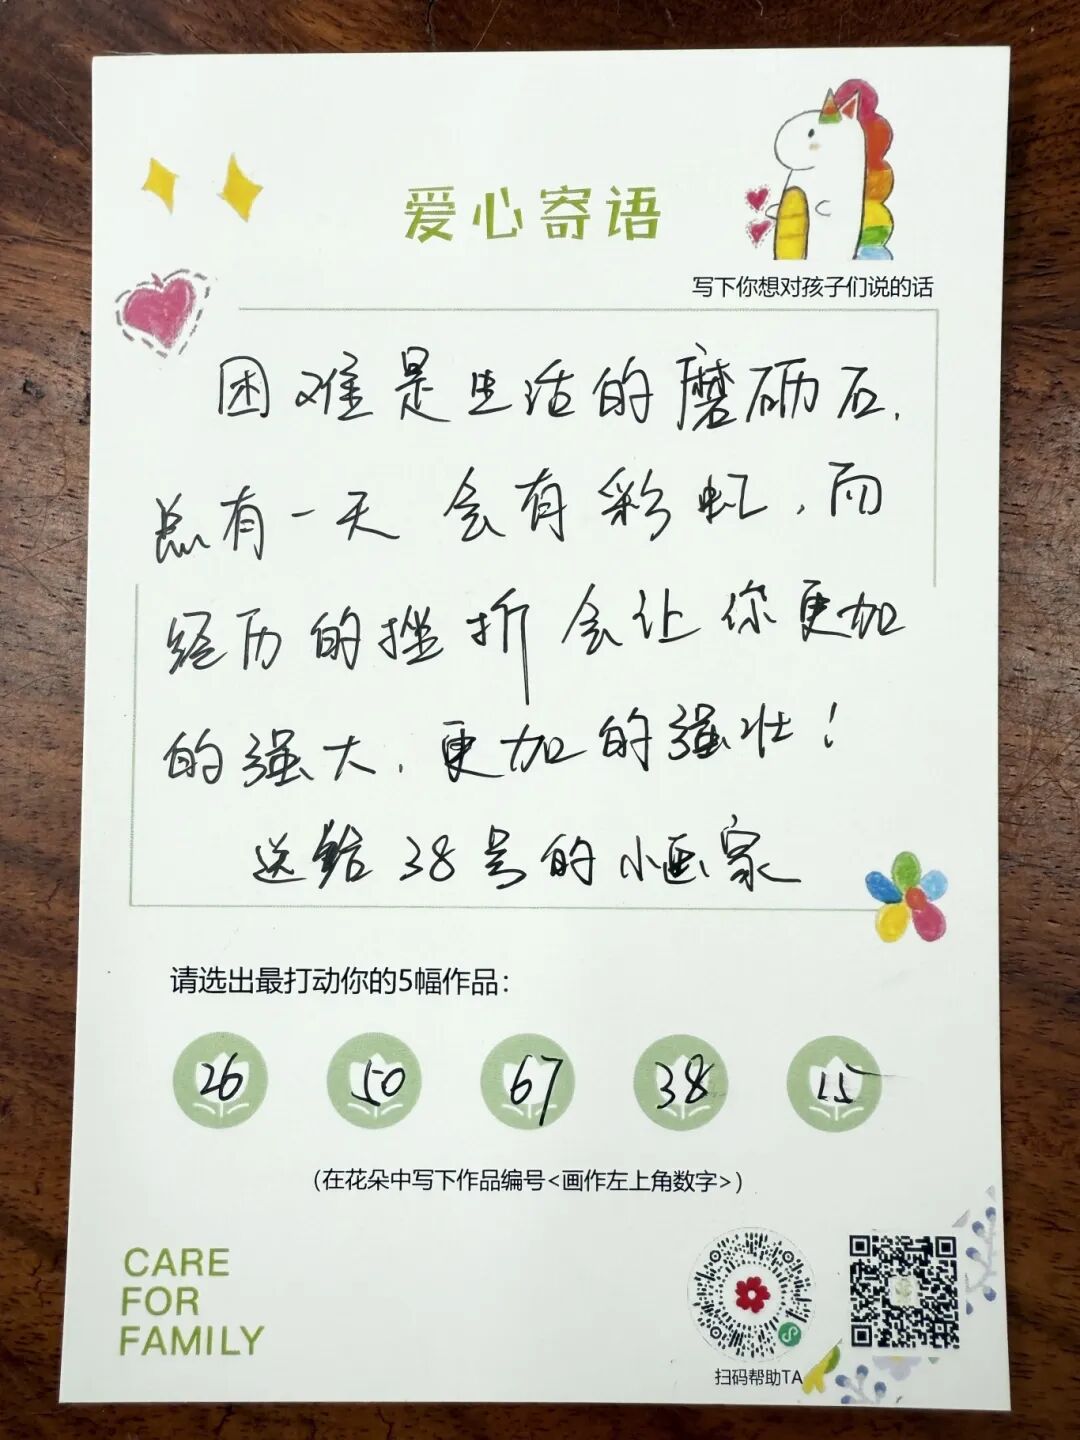 爱心寄语
写下你想对孩子们说的话
困难是生活的磨砺石,
总有一天会有彩虹,而
经历的挫折会让你更加
的强大,更加的强壮!
送给38号的小画家
请选出最打动你的5幅作品:
26 50 67 38 15
(在花朵中写下作品编号<画作左上角数字>)
CARE
FOR
FAMILY
扫码帮助TA